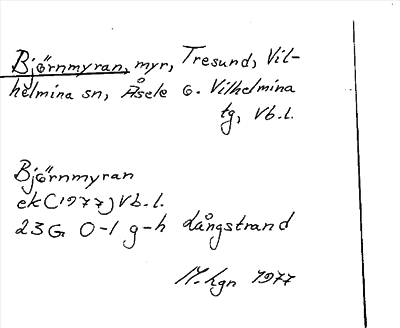 Björnmyran, myr, Tresund, Vil-
helmina sn, Åsele o. Vilhelmina
tg, Vb.l.
Björnmyran
ek (1977) Vb.l.
23G 0-1 g-h Långstrand
M. hgn 1977